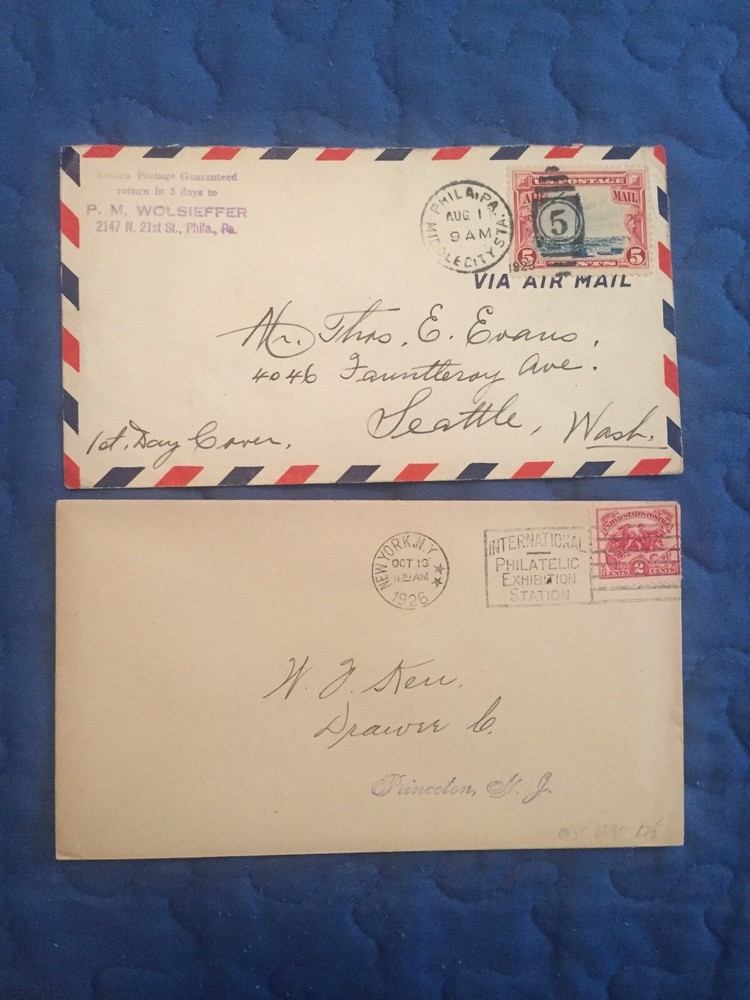 Return Postage Guaranteed
return in 3 days to
P. M. WOLSIEFFER
2147 N. 21st St., Phila., Pa.
PHILA, PA.
AUG 1
9 AM
MIDDLECITY STA.
U.S. POSTAGE
AIR MAIL
5
5 CENTS 5
VIA AIR MAIL
Mr. Thos. E. Evans,
4046 Fauntleroy Ave.
Seattle, Wash.
1st. Day Cover.
NEW YORK, N.Y.
OCT 18
AM
1926
INTERNATIONAL
PHILATELIC
EXHIBITION
STATION
UNITED STATES POSTAGE
CENTS 2 CENTS
W. F. Kerr.
Drawer C.
Princeton, N. J.